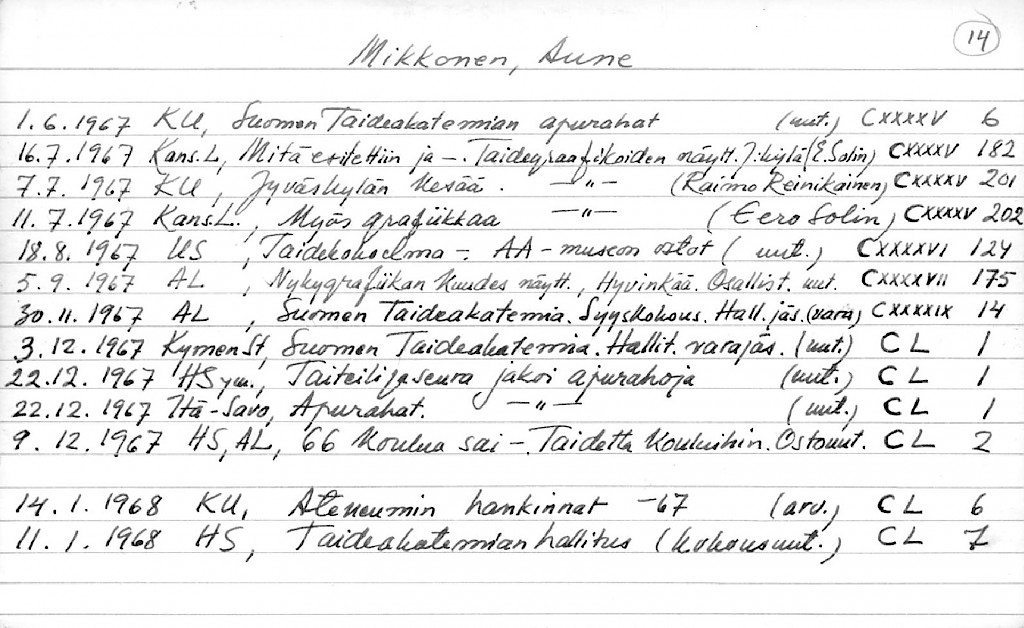 14
Mikkonen, Aune
1.6.1967 KU, Suomen Taideakatemian apurahat (uut.) CXXXXV 6
16.7.1967 Kans.L, Mitä esitettiin ja -. Taidegraafikoiden näytt. J:kylä (E. Solin) CXXXXV 182
7.7.1967 KU, Jyväskylän Kesää. —"— (Raimo Reinikainen) CXXXXV 201
11.7.1967 Kans.L., Myös grafiikkaa —"— (Eero Solin) CXXXXV 202
18.8.1967 US, Taidekokoelma -. AA-museon ostot (uut.) CXXXXVI 124
5.9.1967 AL, Nykygrafiikan Kuudes näytt., Hyvinkää. Osallist. uut. CXXXXVII 175
30.11.1967 AL, Suomen Taideakatemia. Syyskokous. Hall. jäs. (vara) CXXXXIX 14
3.12.1967 KymenSt, Suomen Taideakatemia. Hallit. varajäs. (uut.) CL 1
22.12.1967 HSym., Taiteilijaseura jakoi apurahoja (uut.) CL 1
22.12.1967 Itä-Savo, Apurahat. —"— (uut.) CL 1
9.12.1967 HS, AL, 66 Koulua sai -. Taidetta Kouluihin. Ostouut. CL 2
14.1.1968 KU, Ateneumin hankinnat -67 (arv.) CL 6
11.1.1968 HS, Taideakatemian hallitus (Kokousuut.) CL 7